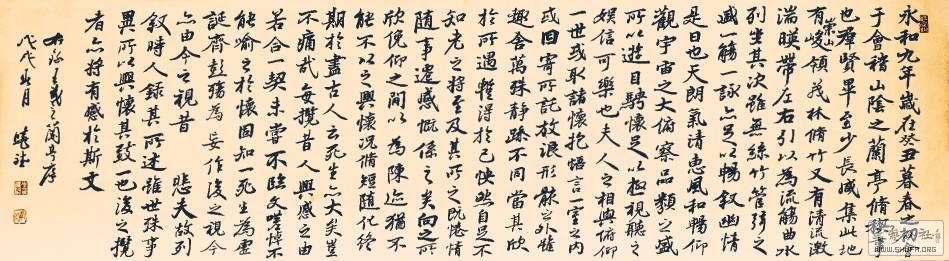 永和九年歲在癸丑暮春之初會
于會稽山陰之蘭亭脩禊事
也群賢畢至少長咸集此地
有崇山峻領茂林脩竹又有清流激
湍暎帶左右引以為流觴曲水
列坐其次雖無絲竹管弦之
盛一觴一詠亦足以暢敘幽情
是日也天朗氣清惠風和暢仰
觀宇宙之大俯察品類之盛
所以遊目騁懷足以極視聽之
娛信可樂也夫人之相與俯仰
一世或取諸懷抱悟言一室之內
或因寄所託放浪形骸之外雖
趣舍萬殊靜躁不同當其欣
於所遇暫得於己怏然自足不
知老之將至及其所之既惓情
隨事遷感慨係之矣向之所
欣俛仰之間以為陳迹猶不
能不以之興懷況脩短隨化終
期於盡古人云死生亦大矣豈
不痛哉每攬昔人興感之由
若合一契未嘗不臨文嗟悼不
能喻之於懷固知一死生為虛
誕齊彭殤為妄作後之視今
亦由今之視昔 悲夫故列
敘時人錄其所述雖世殊事
異所以興懷其致一也後之攬
者亦將有感於斯文
王羲之蘭亭序
戊戌 月
WWW.SHUFA.ORG